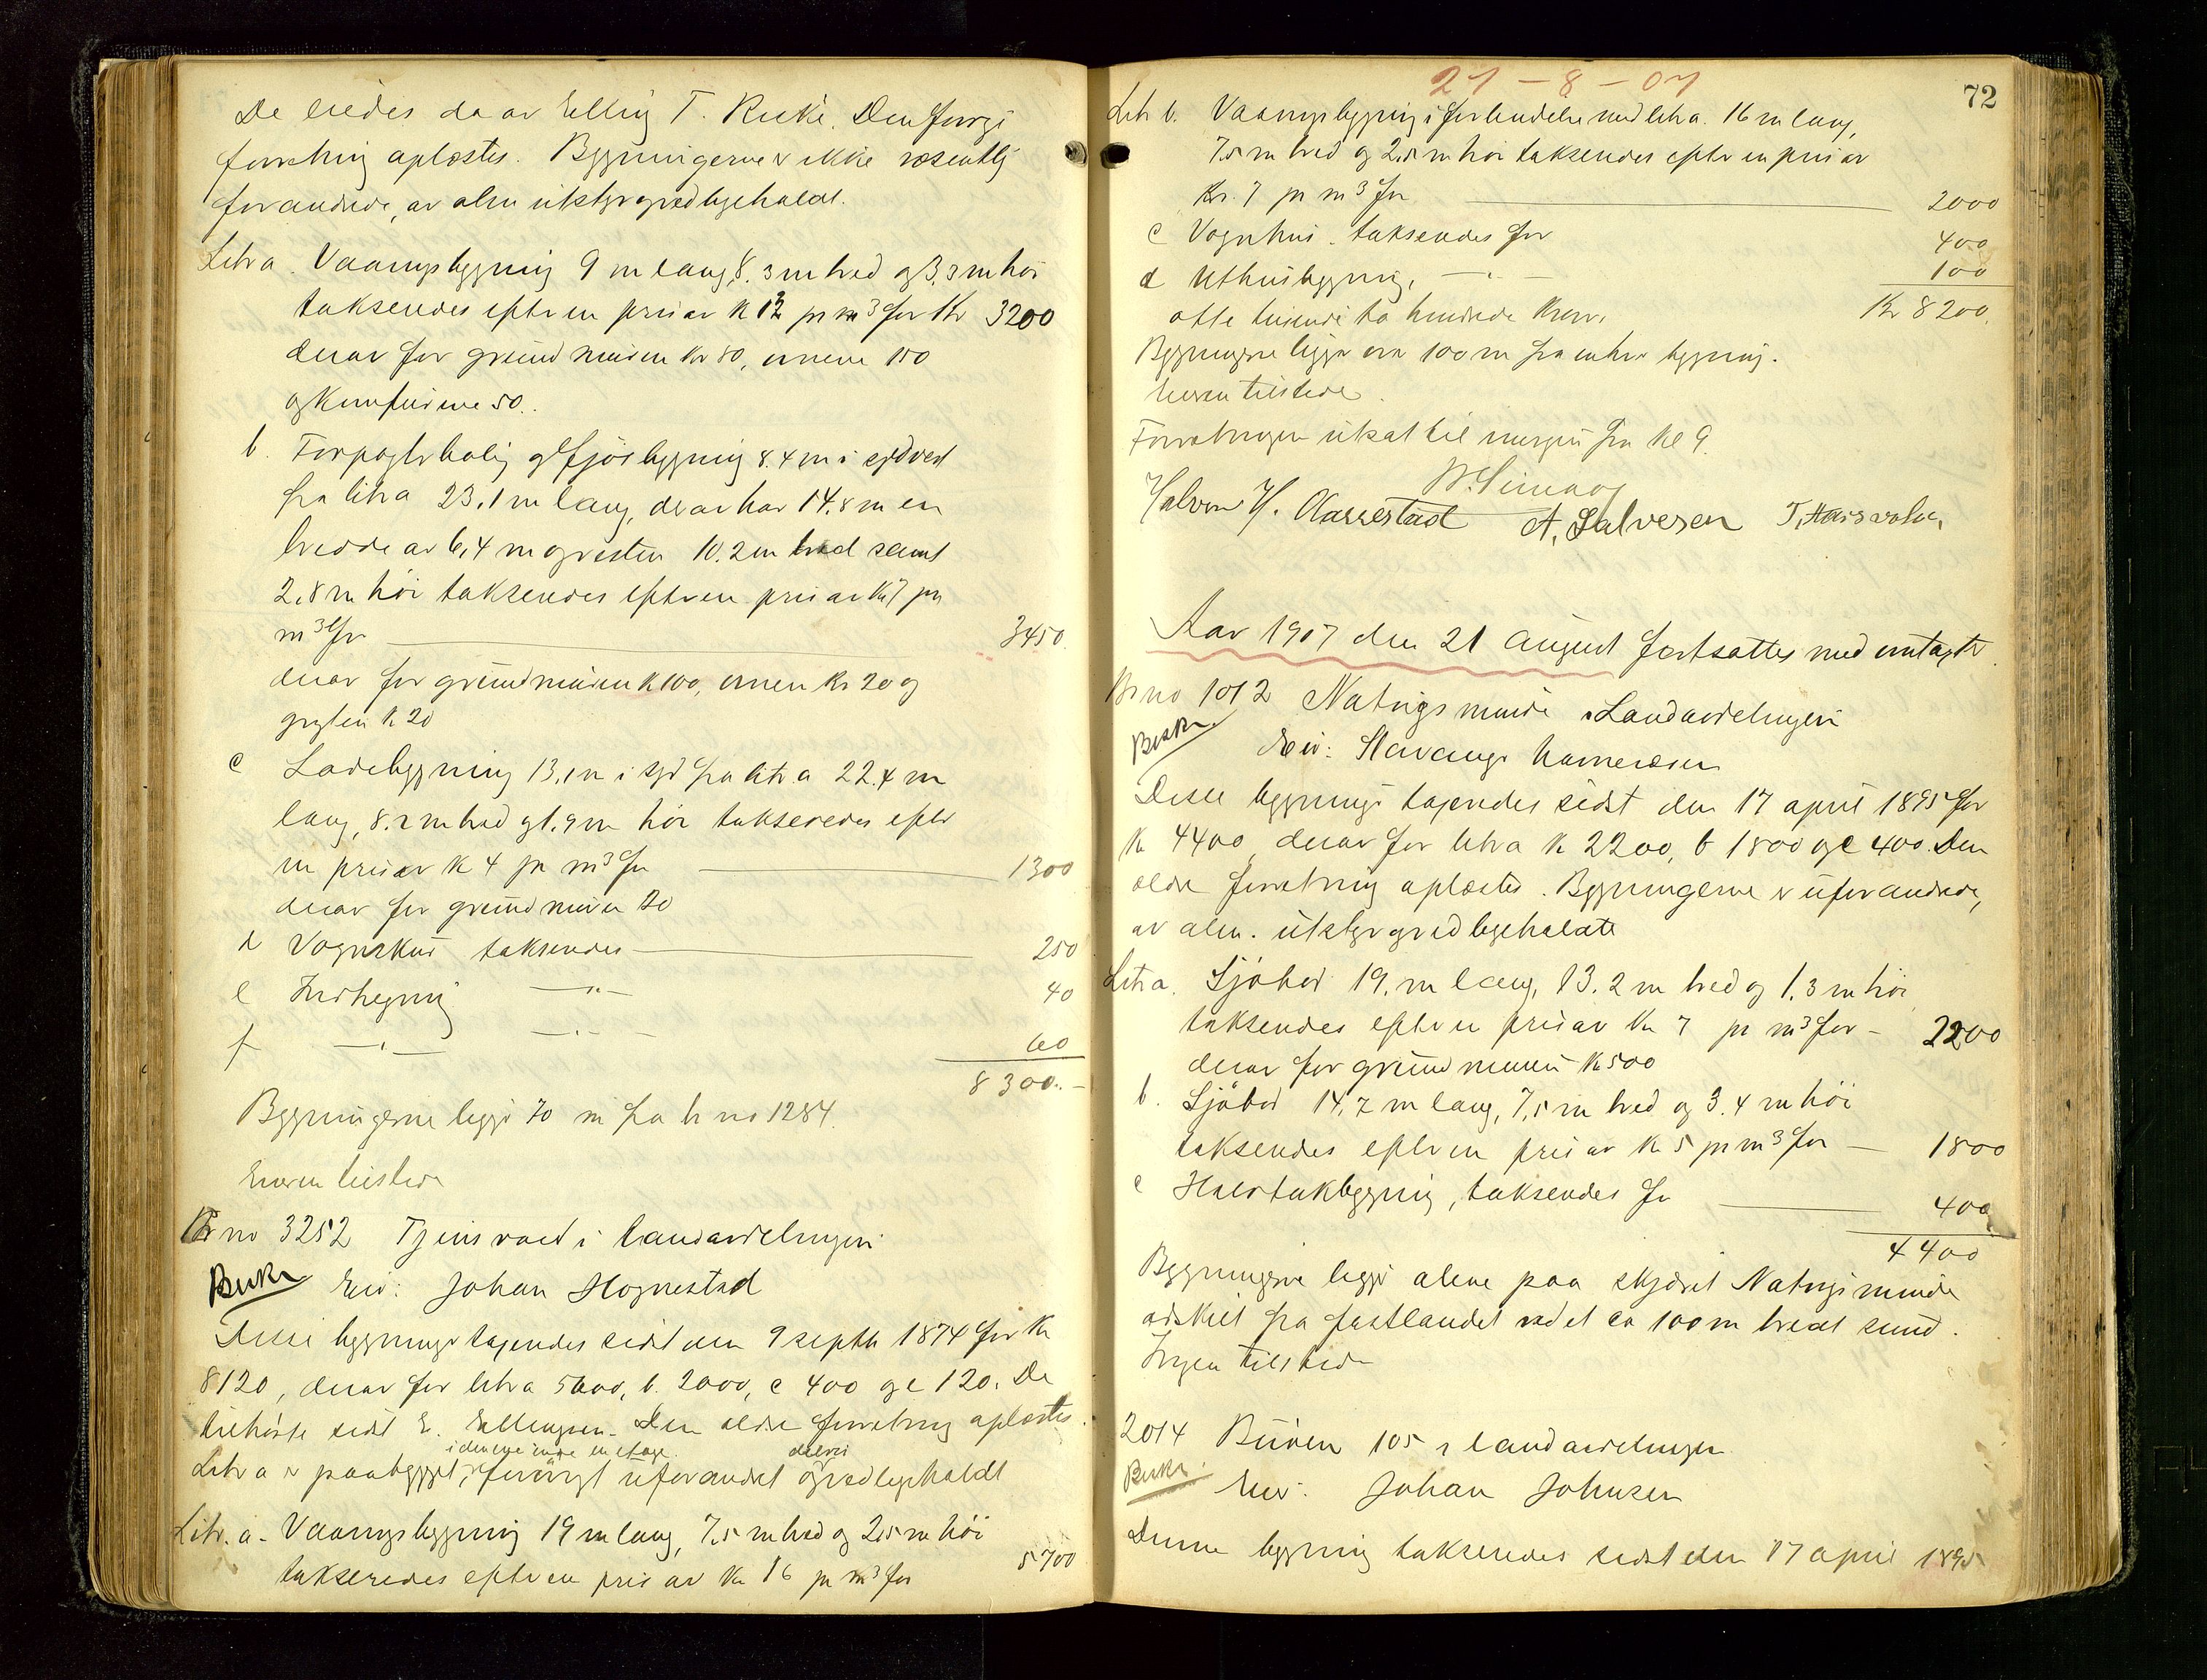 De eiedes da av Elling T. Ruke. Den forrige
forretning oplæstes. Bygningerne er ikke væsentlig
forandrede, av alm utstyr og vedligeholdt.
Litr a. Vaaningsbygning 9 m lang, 8.3 m bred og 3.3 m høi
takseredes efter en pris av kr 12 pr m³ for Kr 3200
derav for grundmuren Kr 80, ovnene 150
og Komfurerne 50.
b. Forpagterbolig og fjøsbygning 8.4 m i sydvest
fra litr a 23.1 m lang, derav har 14.8 m en
bredde av 6,4 m og resten 10.2 m bred samt
2.8 m høi takseredes efter en pris av Kr 7 pr
m³ for 3450.
derav for grundmuren Kr 100, ovnen Kr 20 og
gryten Kr 20
c Ladebygning 13,1 m i syd fra litr a 22.4 m
lang, 8.2 m bred og 1.9 m høi takseredes efter
en pris av Kr 4 pr m³ for 1300
derav for grundmuren 20
d Vognskur takseredes 250
e Indhegning —"— 40
f —"— —"— 60
8300.-
Bygningerne ligger 70 m fra br no 1284.
Eieren tilstede
Br no 3252 Tjensvold i Landavdelingen
Beskr. Eier: Johan Hognestad
Disse bygninger taxeredes sidst den 9 septbr 1874 for Kr
8120, derav for litr a 5600, b. 2000, c 400 og e 120. De
tilhørte sidst E. Ellingsen. Den ældre forretning oplæstes.
i den ene ende en etage. delvis
Litr a er paabygget, forøvrigt uforandret og vedligeholdt
Litr. a. Vaaningsbygning 19 m lang, 7,5 m bred og 2,5 m høi
takseredes efter en pris av Kr 16 pr m³ for 5700
21-8-07
72
Litr b. Vaaningsbygning i forbindelse med litr a. 16 m lang,
7,5 m bred og 2,5 m høi takseredes efter en pris av
Kr. 7 pr m³ for 2000
c Vognhus. takseredes for 400
d Uthusbygning, —"— 100
otte tusinde to hundrede kroner Kr 8200.
Bygningerne ligger over 100 m fra enhver bygning.
Eieren tilstede.
Forretningen utsat til imorgen fra Kl 9.
Halvor H. Aarrestad A. Salvesen
Aar 1907 den 21 august fortsattes med omtakster
Br no 1012 Natvigs minde i Landavdelingen
Beskr. Eier: Stavanger havnevæsen
Disse bygninger taxeredes sidst den 17 april 1895 for
Kr 4400, derav for litr a Kr 2200, b 1800 og c 400. Den
ældre forretning oplæstes. Bygningerne er uforandrede,
av alm. utstyr og vedligeholdte
Litr a. Sjøbod 19. m lang, 13.2 m bred og 1.3 m høi
takseredes efter en pris av Kr 7 pr m³ for - 2200
derav for grundmuren Kr 500
b. Sjøbod 14,7 m lang, 7,5 m bred og 3.4 m høi
takseredes efter en pris av Kr 5 pr m³ for — 1800
c Halvtakbygning, takseredes for 400
4400
Bygningerne ligger alene paa skjæret Natvigs minde
adskilt fra fastlandet ved et ca 100 m bredt sund.
Ingen tilstede
2014 Buøen 105 i landavdelingen
Beskr. Eier: Johan Johnsen
Denne bygning takseredes sidst den 17 april 1895